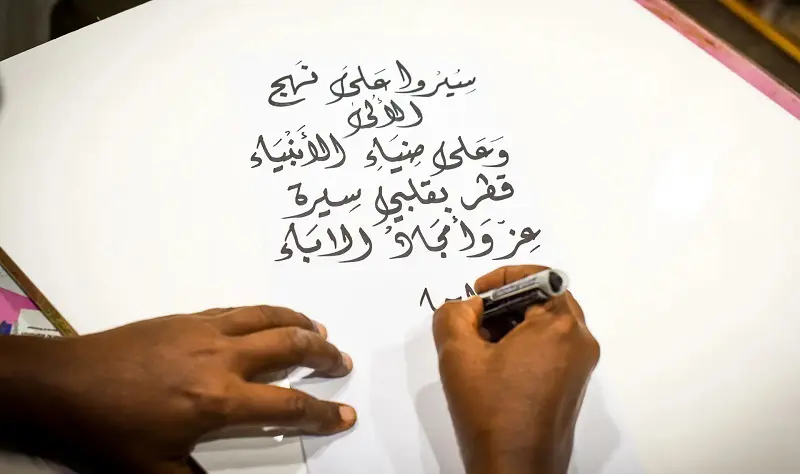 سِيرُوا عَلَى نَهجِ
الأُلَى
وَعَلى ضِيَاءِ الأَنْبيَاء
قطر بقلبي سِيرة
عِزّ وَأمجَادُ الابَاء